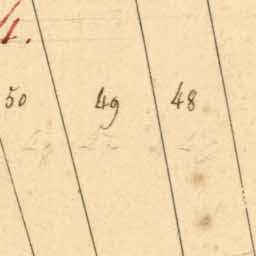 4.
50 49 48